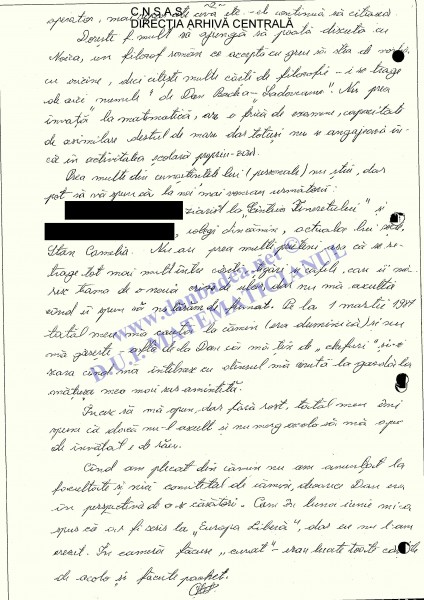 C.N.S.A.S.
DIRECȚIA ARHIVĂ CENTRALĂ
-2-
operativ, mai ales că ceva etc - el continuă să citească.
Dorește f. mult să ajungă să poată discuta cu
Noica, un filosof român ce acceptă cu greu să stea de vorbă
cu oricine, deci citești multe cărți de filosofie - i se trage
de aici numele de Dan Badea "Ladorume". Nu prea
învață la matematică, are o frică de examene, capacitate
de asimilare destul de mare dar totuși nu se angajează în
că în activitatea școlară propriu-zisă.
Prea multe din cunoștințele lui (personale) nu știu, dar
pot să vă spun că la noi mai veneau următorii:
ziarist la "Scînteia Tineretului" și
, colegi din cămin, actuala lui
Stan Camelia. Nu au prea mulți prieteni, era că se re-
trage tot mai mult între cărți, țigări și cafele, care îi mă-
resc teama de o nouă criză de ulcer, dar nu mă ascultă
când îi spun să se lase de fumat. Pe la 1 martie 1989
tatăl meu mă caută la cămin (era duminică) și nu
mă găsește - află de la Dan că mă țin de "chefuri", și-o
seara când mă întâlnesc cu dînsul mă ceartă la gazdă la
mătușa mea mai sus amintită.
Încerc să mă opun, dar fără rost, tatăl meu îmi
spune că dacă nu-l ascult și nu merg acolo să mă apuc
de învățat e de rău.
Când am plecat din cămin nu am anunțat la
facultate și nici comitetul de cămin, deoarece Dan era
în perspectivă de a se căsători. Cam în luna iunie mi-a
spus că ar fi scris la "Europa Liberă", dar eu nu l-am
crezut. În cameră făcuse "curat" - erau luate toate cărțile
de acolo și făcute pachet.
www.danbadea.net ©
B.U.I. MATEMATICIANUL